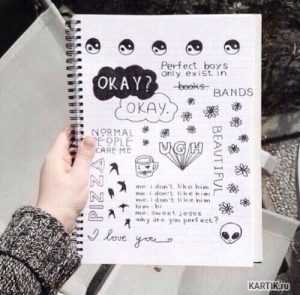 Perfect boys
only exist in
books
BANDS
OKAY?
OKAY.
NORMAL
PEOPLE
SCARE ME
UGH
BEAUTIFUL
PIZZA
me: i don't like him
me: i don't like him
me: i don't like him
him: hi
me: sweet jesus
why are you perfect?
I love you
KARTiK.ru